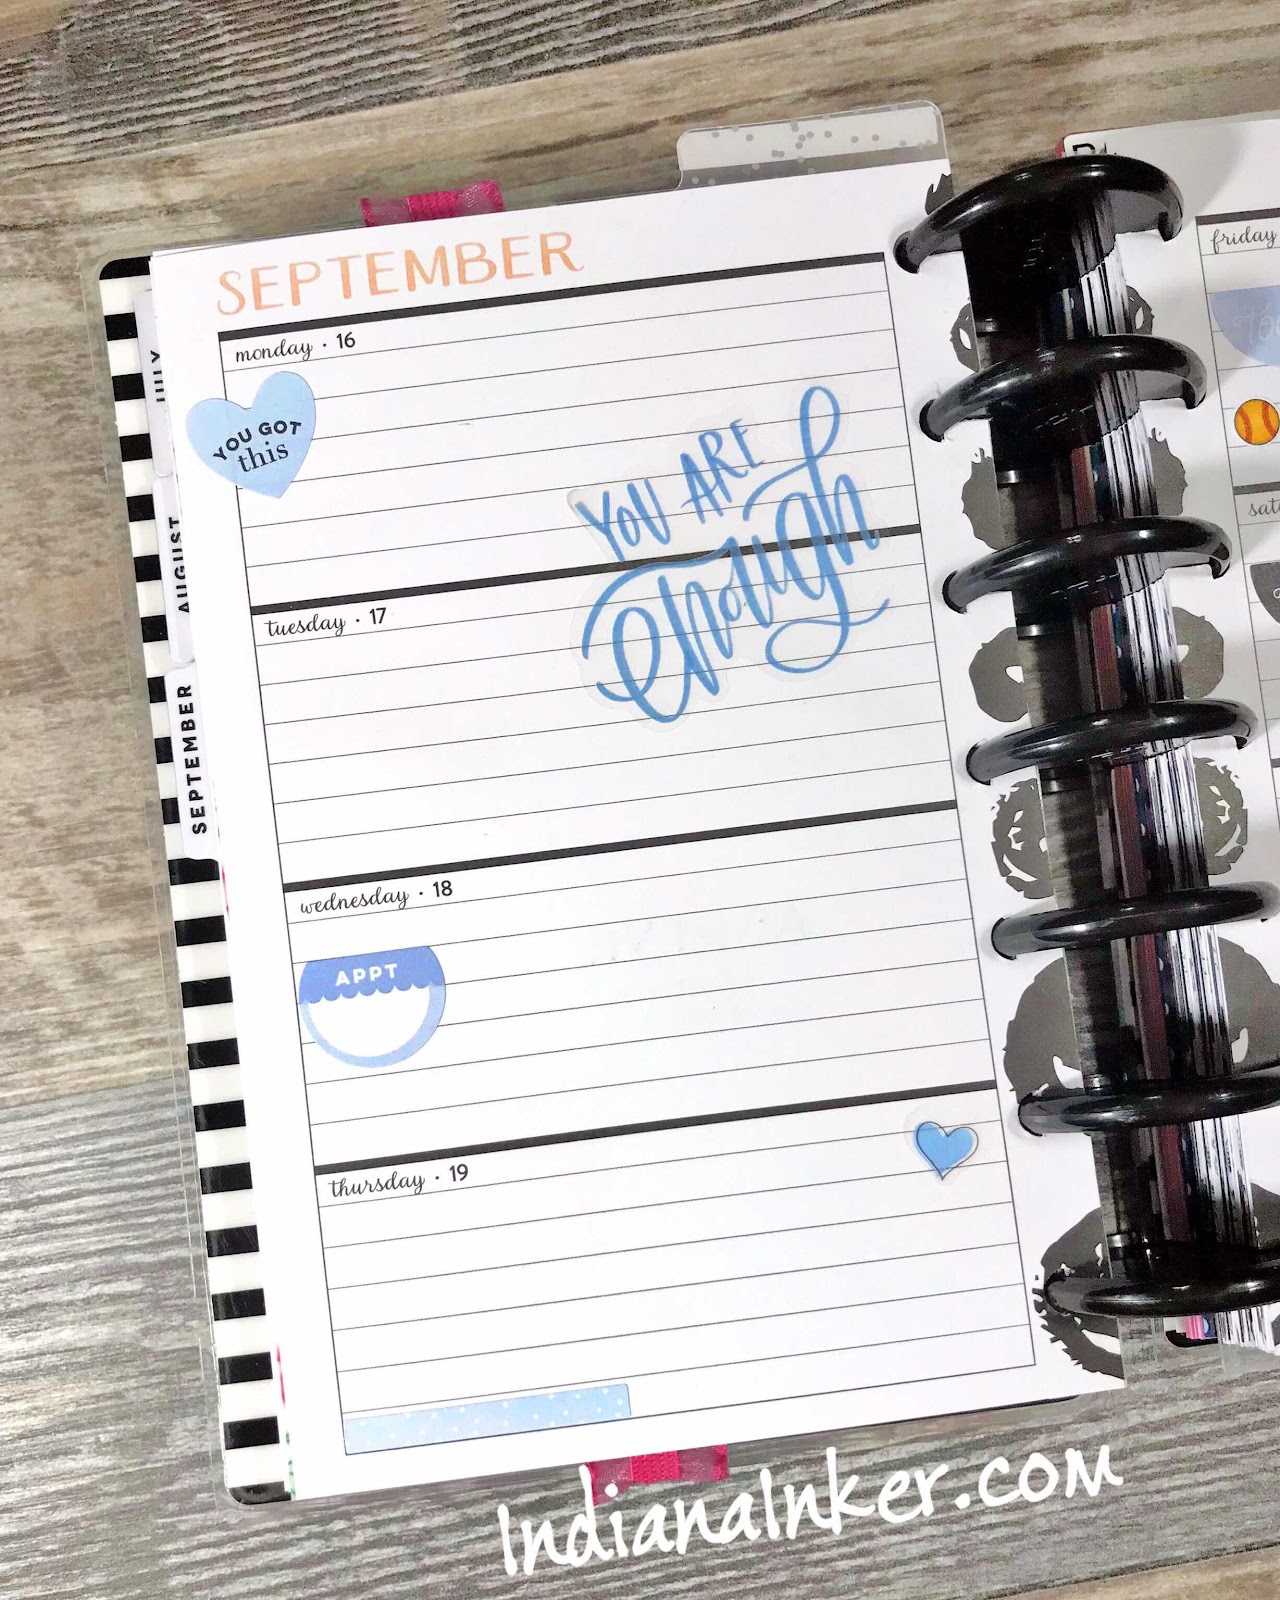 SEPTEMBER
monday · 16
YOU GOT
this
YOU ARE
enough
tuesday · 17
wednesday · 18
APPT
thursday · 19
JULY
AUGUST
SEPTEMBER
friday
IndianaInker.com